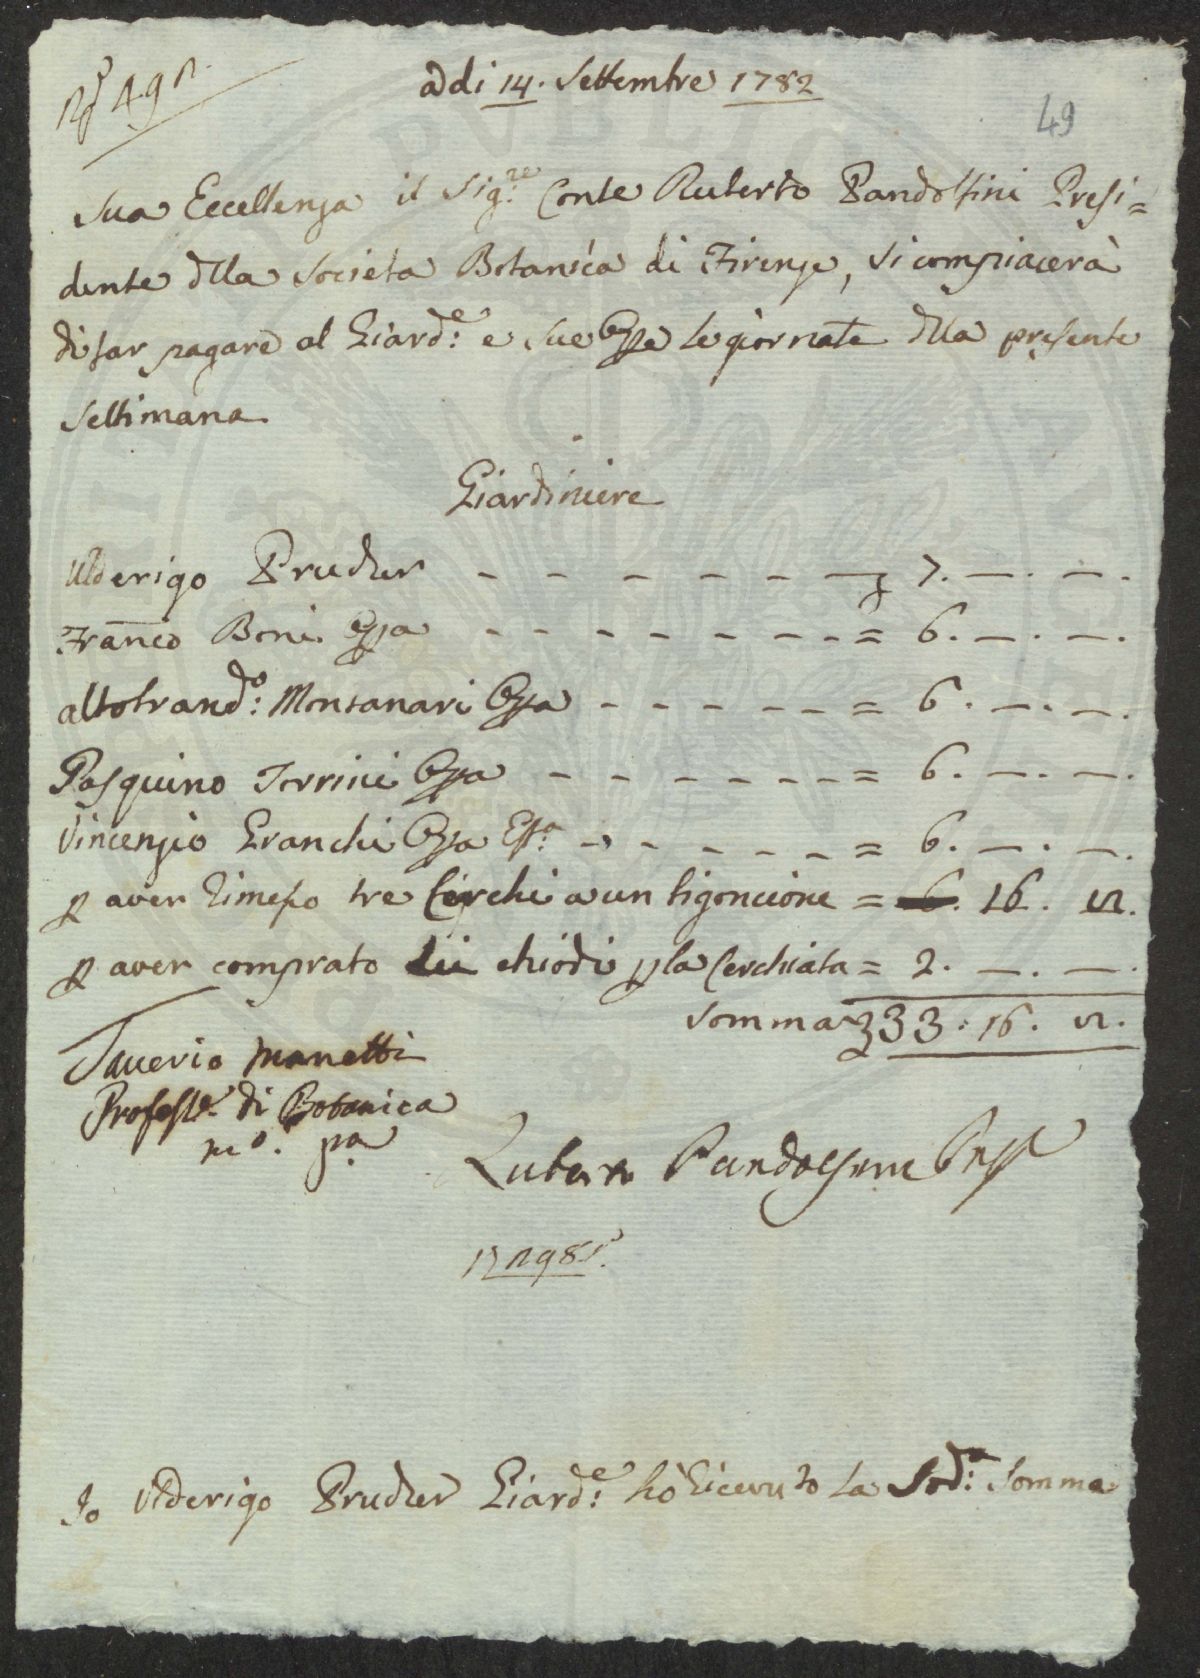 N.º 49
Addi 14. Settembre 1782
49
Sua Eccellenza il Sig.re Conte Ruberto Pandolfini Presi=
dente dlla Societa Botanica di Firenze, si compiacerà
di far pagare al Giard.e e sue Opre le giornate dlla presente
Settimana
Giardiniere
Ulderigo Prucker - - - - - - 7. —. —.
Franco Boni Opra - - - - - - - = 6. —. —.
altobrand.o Montanari Opra - - - - - = 6. —. —.
Pasquino Torrini Opra - - - - - - - = 6. —. —.
Vincenzio Granchi Opra - - - - - = 6. —. —.
p aver rimesso tre Cerchi a un bigoncione = 16.
p aver comprato chiodi p la Cerchiata = 2. —. —.
Somma 33. 16.
Saverio Manetti
Profess.e di Botanica
m.o pa
Ruberto Pandolfini Press
Io Ulderigo Prucker Giard.e hò ricevuto la Sod.a Somma